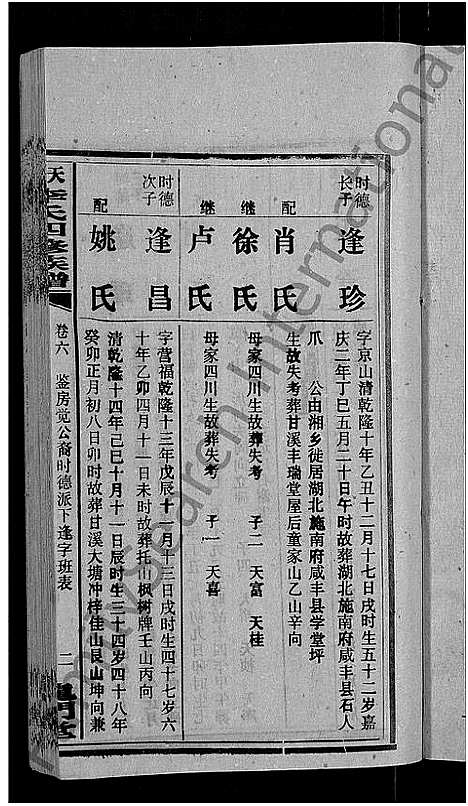 时德长子
逢珍
字京山清乾隆十年乙丑十二月十七日戌时生五十二岁嘉
庆二年丁巳五月二十日午时故葬湖北施南府咸丰县石人
爪 公由湘乡徙居湖北施南府咸丰县学堂坪
配
肖氏
生故失考葬甘溪丰瑞堂屋后童家山乙山辛向
继
徐氏
母家四川生故葬失考 子二 天富 天桂
继
卢氏
母家四川生故葬失考 子一 天喜
时德次子
逢昌
字营福乾隆十三年戊辰十一月初三日戌时生四十七岁六
十年乙卯四月十一日未时故葬托山枫树牌壬山丙向
配
姚氏
清乾隆十四年己巳十月十一日辰时生三十四岁四十八年
癸卯正月初八日卯时故葬甘溪大塘冲梓佳山艮山坤向兼
氏四修族谱
卷六 鉴房觉公裔时德派下逢字班表
二